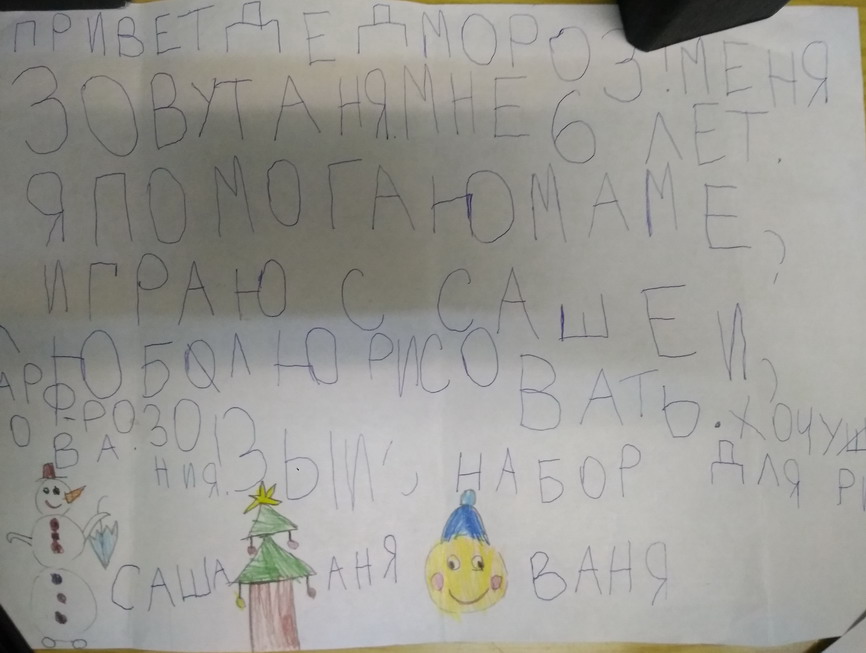 ПРИВЕТ ДЕД МОРОЗ! МЕНЯ
ЗОВУТ АНЯ. МНЕ 6 ЛЕТ.
Я ПОМОГАЮ МАМЕ,
ИГРАЮ С САШЕЙ,
ЛЮБЛЮ РИСОВАТЬ. ХОЧУ Ш
АРФ РОЗОВЫЙ, НАБОР ДЛЯ РИ
ОВАНИЯ.
САША АНЯ ВАНЯ